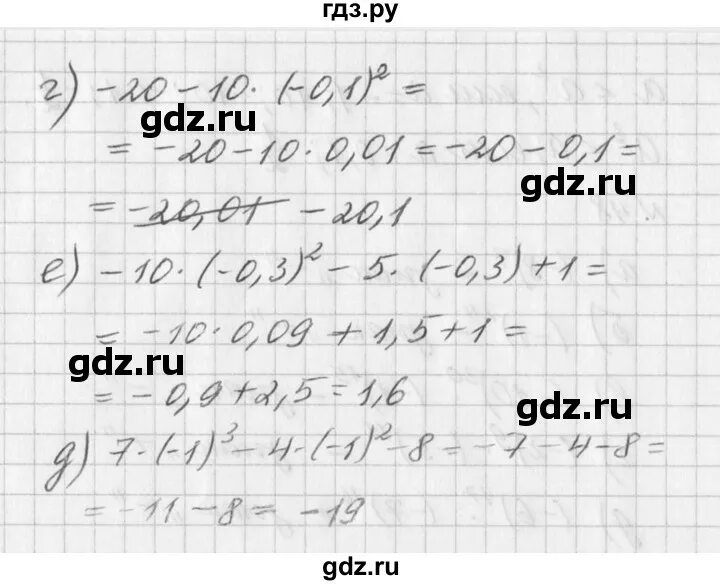 гдз.ру
г) -20-10·(-0,1)² =
gdz.ru
= -20-10·0,01 = -20-0,1 =
gdz.ru
= -20,01 -20,1
е) -10·(-0,3)² - 5·(-0,3)+1 =
= -10·0,09 + 1,5+1 =
gdz.ru
= -0,9+2,5 = 1,6
gdz.ru
д) 7·(-1)³-4·(-1)²-8 = -7-4-8 =
= -11-8 = -19
gdz.ru
gdz.ru